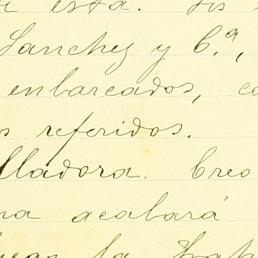 esta. Los
Sanchez y C.ª,
embarcados, co
s referidos.
lladora. Creo
na acabará
la